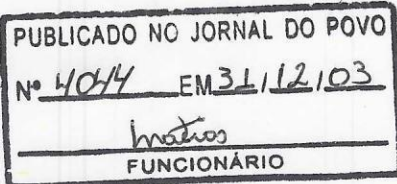 PUBLICADO NO JORNAL DO POVO
Nº 4044 EM 31/12/03
FUNCIONÁRIO